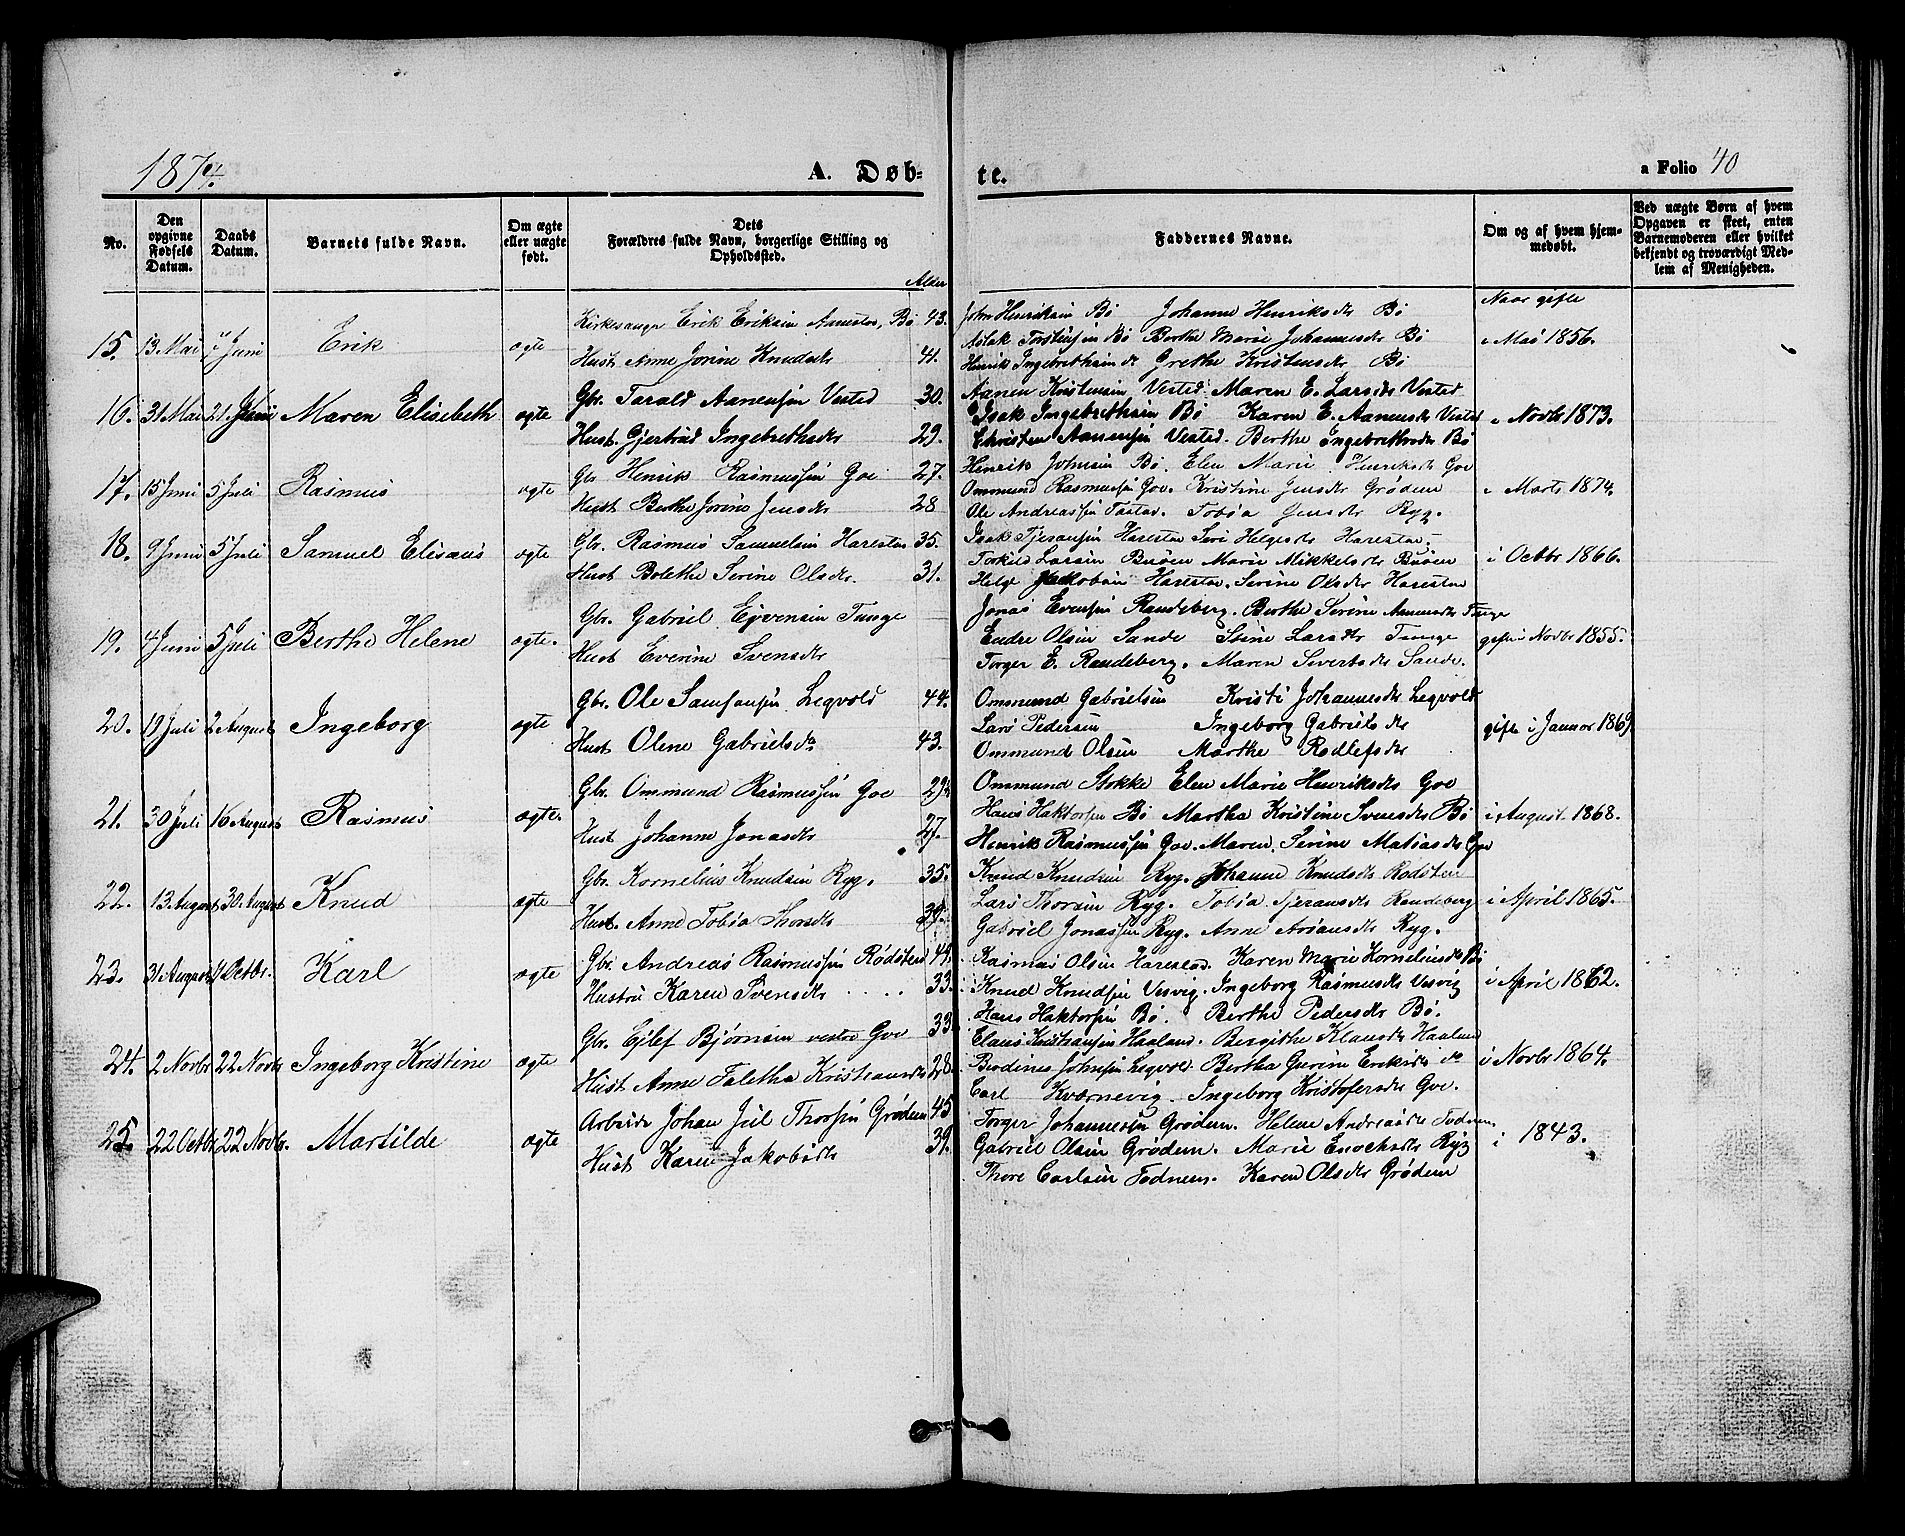 1874. A. Døb-te. a Folio 40
No.
Den opgivne Fødsels Datum.
Daabs Datum.
Barnets fulde Navn.
Om ægte eller uægte født.
Dets Forældres fulde Navn, borgerlige Stilling og Opholdssted.
Alder
Faddernes Navne.
Om og af hvem hjemmedøbt.
Ved uægte Børn af hvem Opgaven er skeet, enten Barnemoderen eller hvilket bekjendt og troværdigt Medlem af Menigheden.
Naar gifte
15. 13 Mai 7 Juni Erik ægte
Kirkesanger Erik Eriksen Bø 43.
Hust Anne Jorine Knudsdr 41.
John Henriksen Bø Johanne Henriksdr Bø
Aslak Torstensen Bø Berthe Marie Johannesdr Bø
Henrik Ingebrethsen do Grethe Kristensdr Bø
i Mai 1856.
16. 31 Mai 21 Juni Maren Elisebeth ægte
Gbr. Tarald Aanensen Vested 30.
Hust. Gjertrud Ingebrethsdr 29.
Aanen Kristensen Vested. Maren E. Larsdr Vested
Isak Ingebrethsen Bø Karen E. Aanensdr Vested
Christen Aanensen Vested. Berthe Ingebrethsdr Bø
i Novbr 1873.
17. 15 Juni 5 Juli Rasmus ægte
Gbr Henrik Rasmussen Goe 27.
Hust Berthe Jorine Jensdr 28
Henrik Johnsen Bø. Elen Marie Henriksdr Goe
Ommund Rasmussen Goe. Kristine Jensdr Grødem
Ole Andreassen Tastad. Tobia Jensdr Ryg.
i Marts 1874.
18. 9 Juni 5 Juli Samuel Elisæus ægte
Gbr. Rasmus Samuelsen Harestad 35.
Hust Bolethe Serine Olsdr. 31.
Isak Tjeransen Harestad Siri Helgesdr Harestad.
Torkild Larsen Buøen Marie Mikkelsdr Buøen
Helge Jakobsen Harestad. Serine Olsdr Harestad
i Octbr 1866.
19. 4 Juni 5 Juli Berthe Helene ægte.
Gbr. Gabriel Ejvensen Tunge
Hust Everine Svensdr
Jonas Evensen Randeberg. Berthe Serine Aanensdr Tunge
Endre Olsen Sande Stine Larsdr Tunge
Torger E. Randeberg. Maren Sivertsdr Sande.
gift i Novbr 1855.
20. 19 Juli 2 August Ingeborg ægte
Gbr. Ole Samsonsen Legvold 44.
Hust Olene Gabrielsdr 43.
Ommund Gabrielsen Kristi Johannesdr Legvold
Lars Pedersen Ingeborg Gabrielsdr
Ommund Olsen Marthe Rodlefsdr
gifte i Januar 1869
21. 30 Juli 16 August Rasmus ægte.
Gbr. Ommund Rasmussen Goe 29.
Hust Johanne Jonasdr 27.
Ommund Stokke Elen Marie Henriksdr Goe
Hans Haktorsen Bø Martha Kristine Svensdr Bø
Henrik Rasmussen Goe. Maren Serine Matiasdr Goe
i August 1868.
22. 13 August 30 August Knud ægte
Gbr. Kornelius Knudsen Ryg. 35.
Hust. Anne Tobia Thorsdr
Knud Knudsen Ryg. Johanne Knudsdr Rodsten
Lars Thorsen Ryg. Tobia Tjeransdr Randeberg
Gabriel Jonassen Ryg. Anne Ariansdr Ryg.
i April 1865.
23. 31 August 4 Octbr. Karl ægte
Gbr. Andreas Rasmussen Rødsten 49.
Hustru Karen Svensdr 33.
Rasmus Olsen Harestad. Karen Marie Korneliusdr Bø
Knud Knudsen Vesvig. Ingeborg Rasmusdr Vesvig
Hans Haktorsen Bø. Berthe Pedersdr Bø.
i April 1862.
24. 2 Novbr 22 Novbr Ingeborg Kristine ægte
Gbr. Ejlef Bjørnsen vestre Goe 33
Hust Anne Taletha Kristiansdr 28.
Claus Kristiansen Haaland. Bergithe Klausdr Haaland
Berdines Johnsen Legvol. Bertha Gurine Eriksdr do
Carl Kværnevig. Ingeborg Kristofersdr Goe.
i Novbr 1864.
25. 22 Octbr 22 Novbr. Martilde ægte
Arbeider Johan Jul Thorsen Grødem 45
Hust Karen Jakobsdr 39.
Torger Johannessen Grødem. Helene Andreasdr Todnem
Gabriel Olsen Grødem. Marie Enochsdr Ryg
Thore Carlsen Todnem. Karen Olsdr Grødem
i 1843.